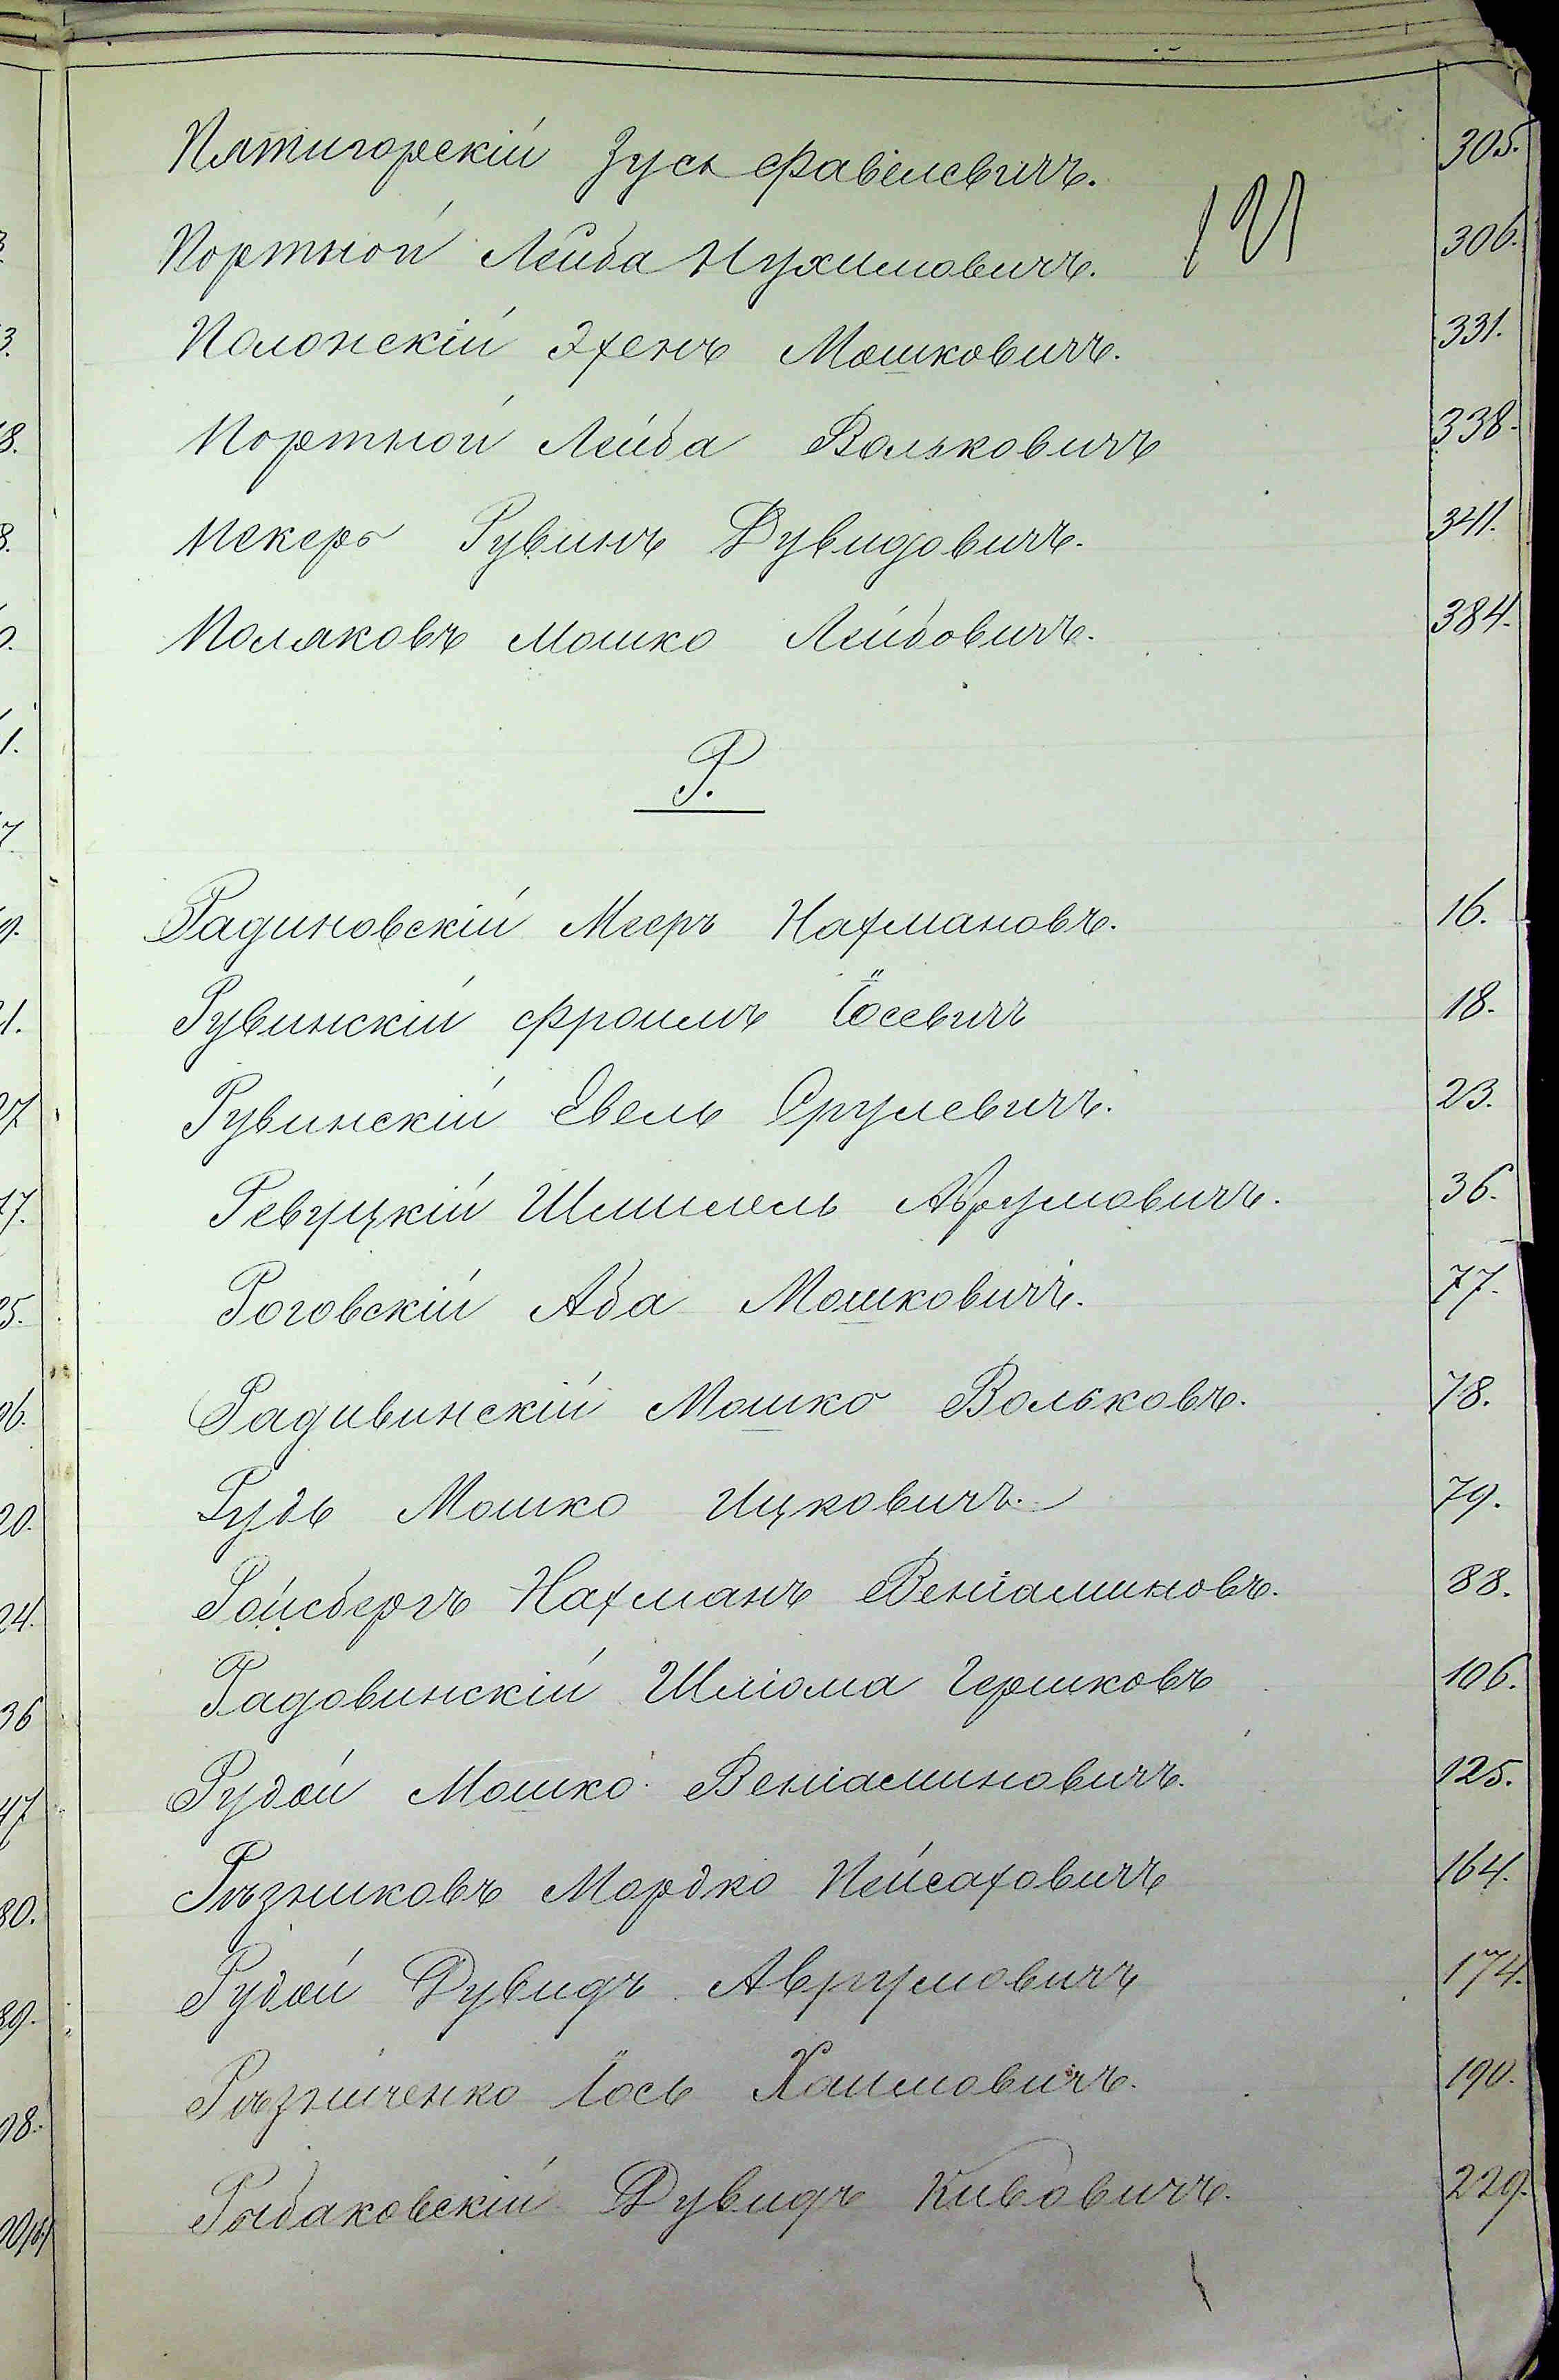 Пятигорскій Зусь Фавелевичъ. 305.
121
Портной Лейба Нухимовичъ. 306.
Полонскій Эхенъ Мошковичъ. 331.
Портной Лейба Вольковичъ 338.
Пекеръ Рувинъ Дувидовичъ. 341.
Поляковъ Мошко Лейбовичъ. 384.
Р.
Радиновскій Мееръ Нахмановъ. 16.
Рувинскій Фроимъ Іосевичъ 18.
Рувинскій Евель Срулевичъ. 23.
Ревуцкій Шмилель Аврумовичъ. 36.
Роговскій Аба Мошковичъ. 77.
Радивинскій Мошко Вольковъ. 78.
Рудь Мошко Ицковичъ. 79.
Ройсбергъ Нахманъ Веніаминовъ. 88.
Радовинскій Шліома Гершковъ 106.
Рудой Мошко Веніаминовичъ. 125.
Рѣзниковъ Мордко Пейсаховичъ 164.
Рудой Дувидъ Аврумовичъ 174.
Рѣзниченко Іось Хаимовичъ. 190.
Рыбаковскій Дувидъ Кивовичъ. 229.